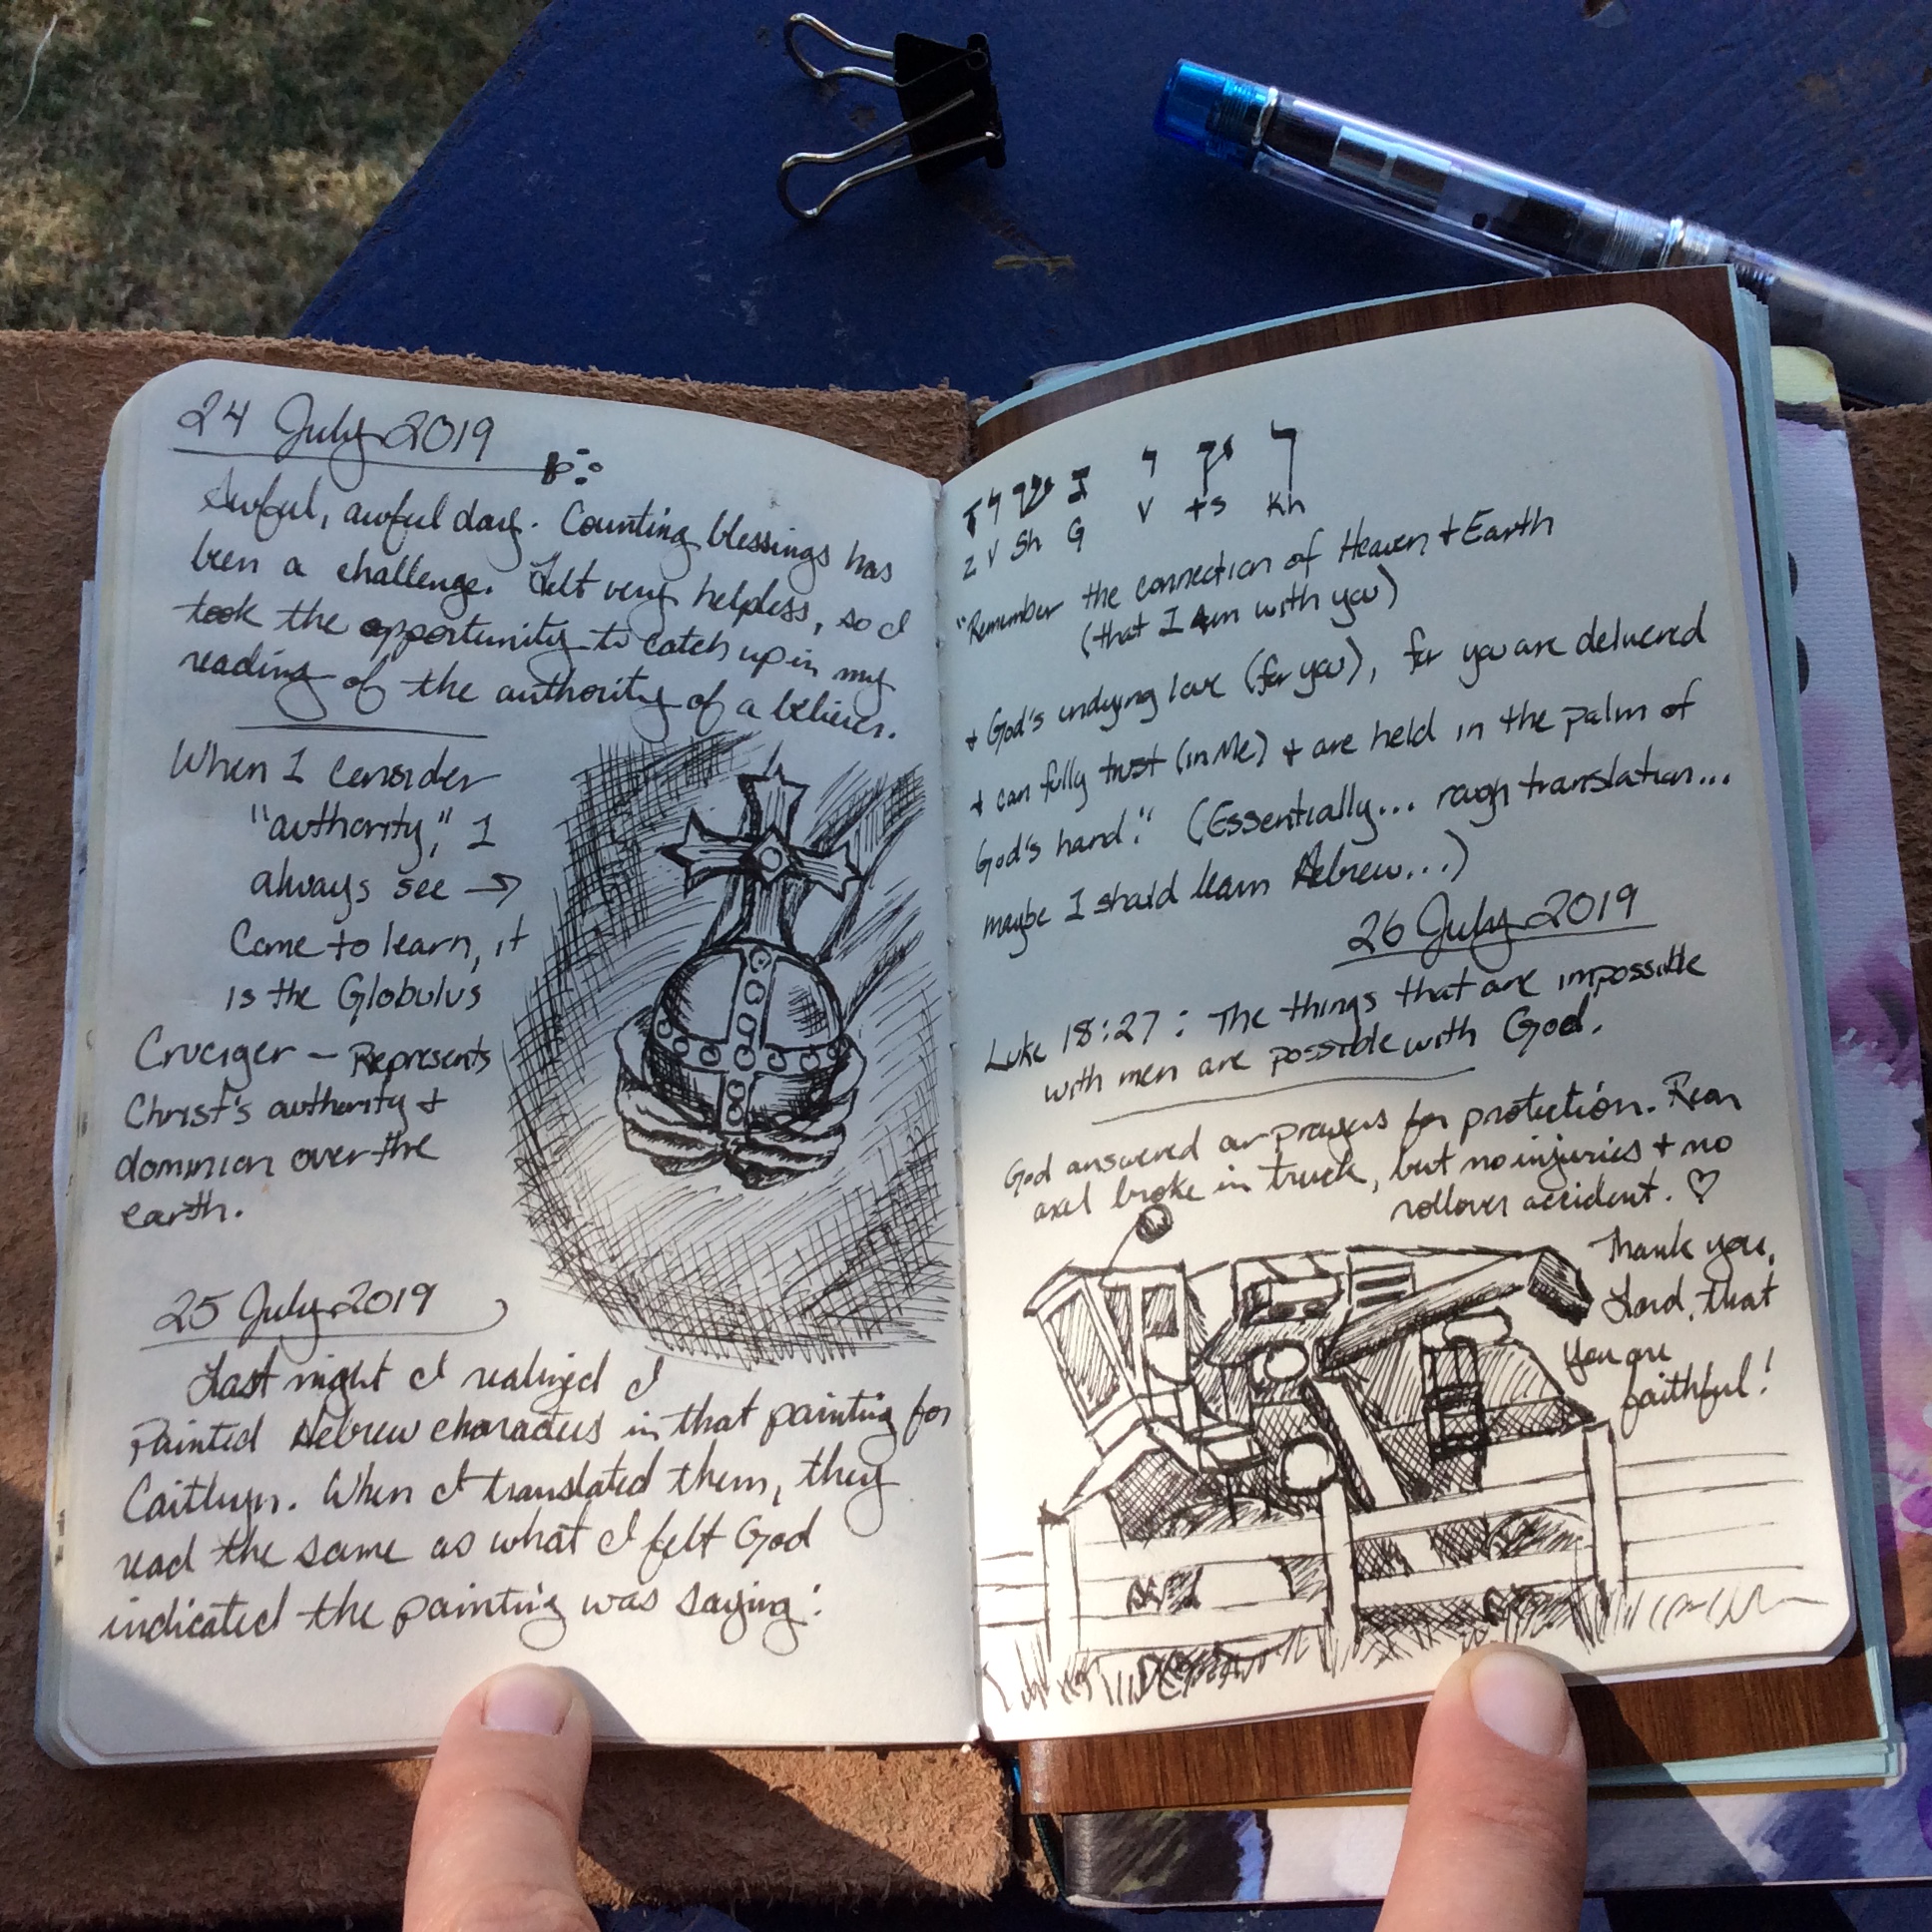 24 July 2019
Awful, awful day. Counting blessings has
been a challenge. Felt very helpless, so I
took the opportunity to catch up in my
reading of the authority of a believer.
When I consider
"authority," I
always see →
Come to learn, it
is the Globulus
Cruciger – Represents
Christ's authority +
dominion over the
earth.
25 July 2019
Last night I realized I
Painted Hebrew characters in that painting for
Caitlyn. When I translated them, they
read the same as what I felt God
indicated the painting was saying:
z v Sh G v ts Kh
"Remember the connection of Heaven + Earth
(that I Am with you)
+ God's undying love (for you), for you are delivered
+ can fully trust (in Me) + are held in the palm of
God's hand." (Essentially... rough translation...
maybe I should learn Hebrew...)
26 July 2019
Luke 18:27: The things that are impossible
with men are possible with God.
God answered our prayers for protection. Rear
axel broke in truck, but no injuries + no
rollover accident. ♡
Thank you,
Lord, that
you are
faithful!